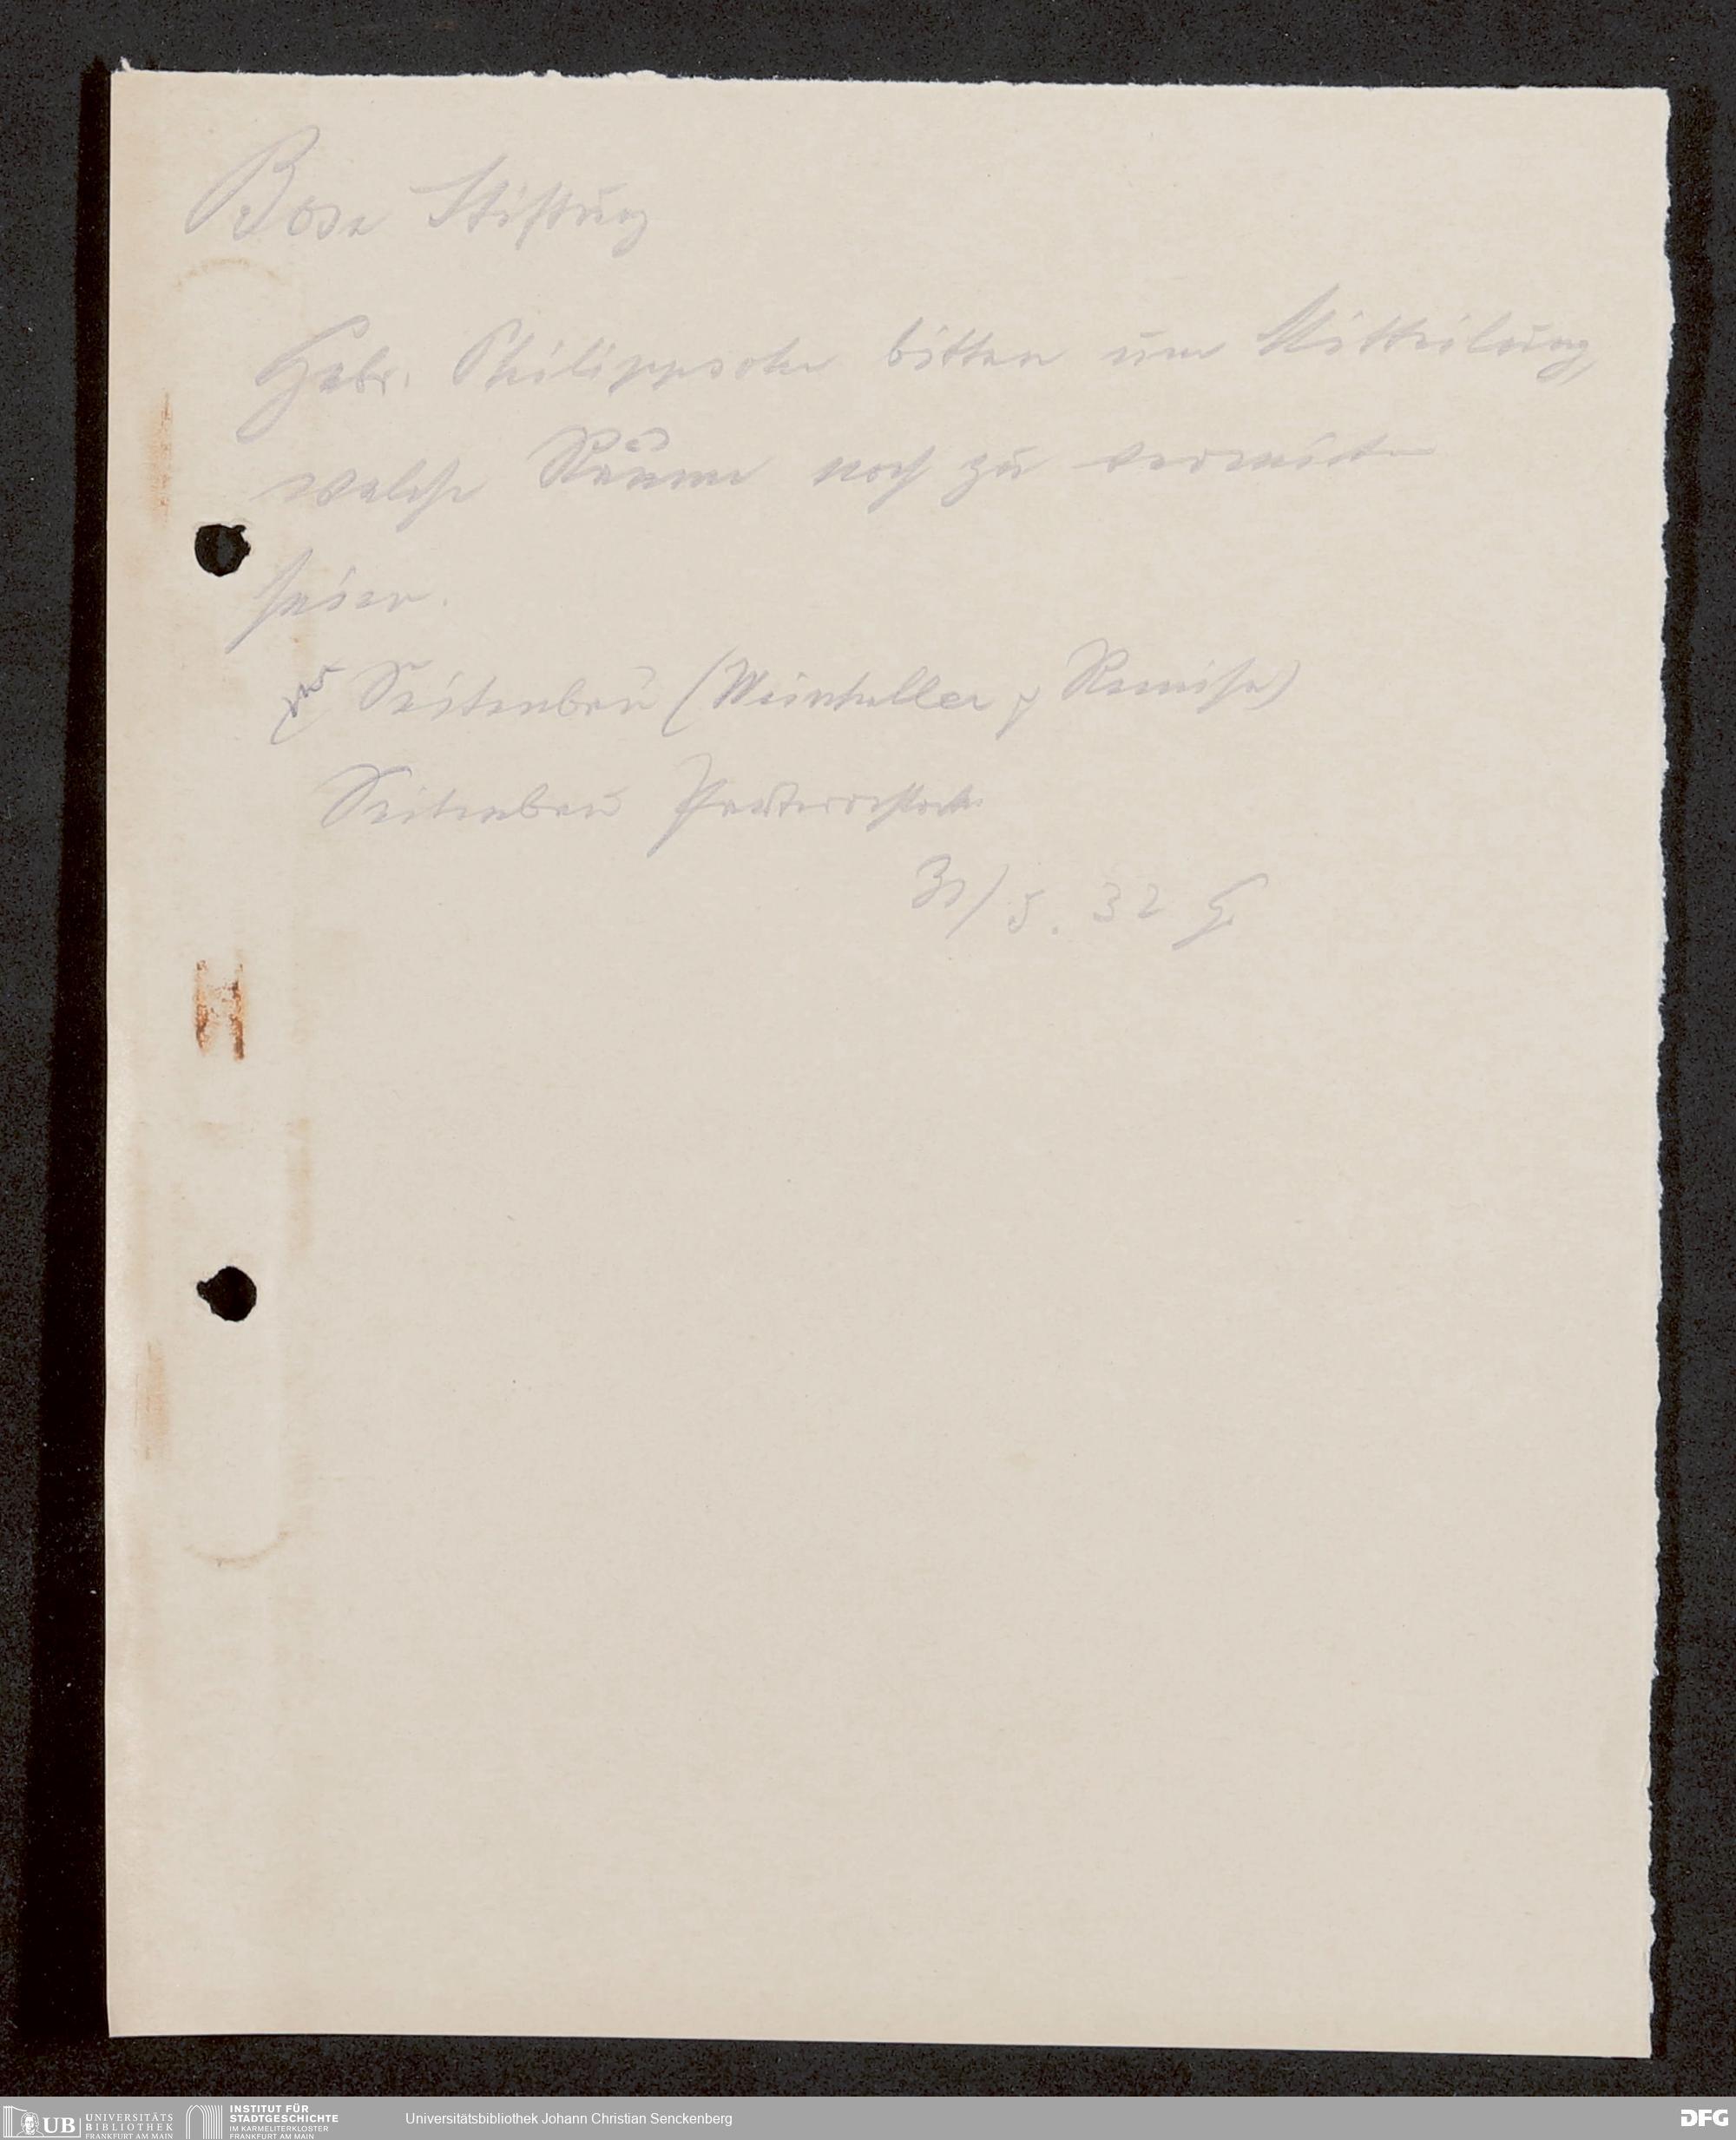 Bose Stiftung
Gebr. Philippsohn bitten um Mitteilung,
welche Räume noch zu vermieten
seien.
Seitenbau (Weinkeller & Remise)
Seitenbau Parterrestock
31/5. 32 G.
UB UNIVERSITÄTS
BIBLIOTHEK
FRANKFURT AM MAIN
INSTITUT FÜR
STADTGESCHICHTE
IM KARMELITERKLOSTER
FRANKFURT AM MAIN
Universitätsbibliothek Johann Christian Senckenberg
DFG